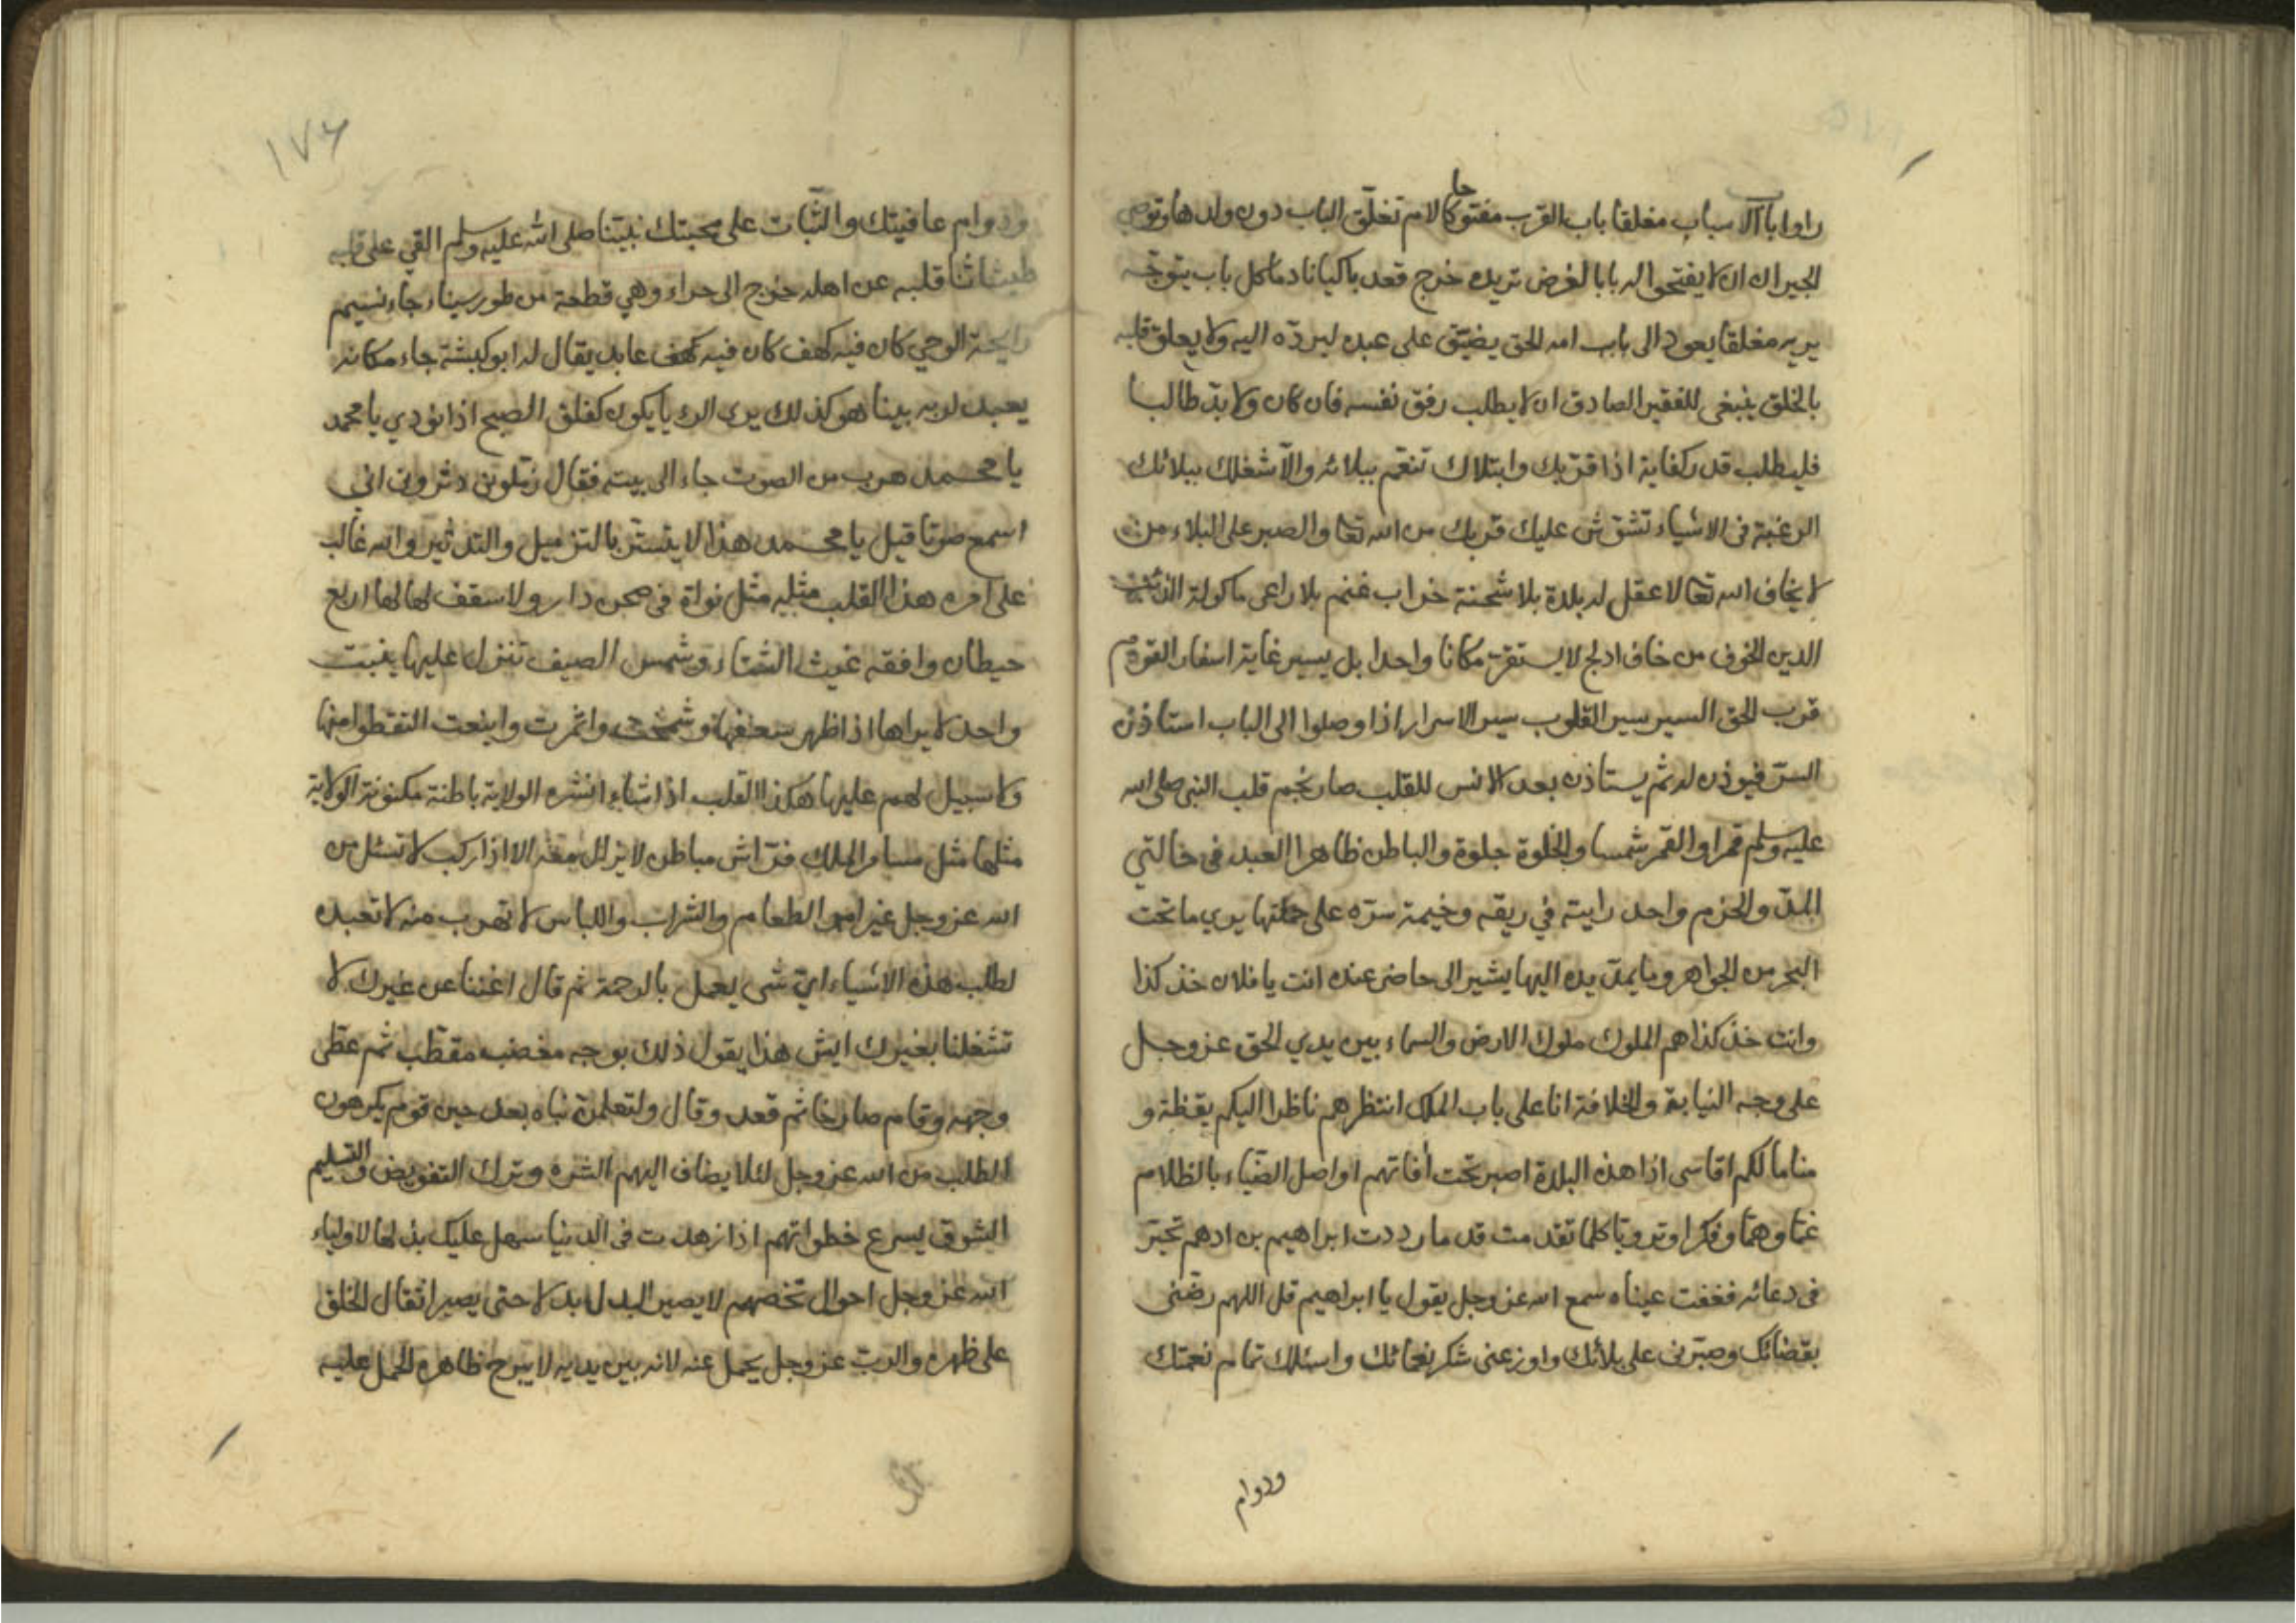 راوا باب الاسباب مغلقا باب القرب مفتوحا كالام تغلق الباب دون ولدها وتوصي
الجيران ان لا يفتحوا له بابا لغرض تريده خرج قعد باكيا نادما كل باب يتوجه
يريه مغلقا يعود الى باب امه الحق يضيق على عبده ليرده اليه ولا يعلق قلبه
بالخلق ينبغى للفقير الصادق ان لا يطلب رفق نفسه فان كان ولا بد طالبا
فليطلب قدر كفاية اذا قربك وابتلاك تنعم ببلائه والا شغلك ببلائك
الرغبة فى الاشياء تشوش عليك قربك من الله تعا والصبر على البلاء من
لا يخاف الله تعا لا عقل له بلدة بلا شحنة خراب غنم بلا راعى ماكولة الذئب
الدين الخوف من خاف ادلج لا يستقر مكانا واحدا بل يسير غاية اسفار القوم
قرب الحق السير سير القلوب سير الاسرار اذا وصلوا الى الباب استاذن
السر فيوذن له ثم يستاذن بعد الانس للقلب صار نجم قلب النبي صلى الله
عليه وسلم قمرا والقمر شمسا والخلوة جلوة والباطن ظاهرا العبد فى حالتي
المد والجزم واحد رايته في ريقه وخيمة سره على جملتها يرى ما تحت
البحر من الجواهر وما يمد يده اليها يشير الى حاضر عنده انت يا فلان خذ كذا
وانت خذ كذا هم الملوك ملوك الارض والسماء بين يدي الحق عز وجل
على وجه النيابة والخلافة انا على باب الملك انتظرهم ناظرا اليكم يقظة و
مناما لكم اقاسى اذا هذه البلدة اصبر تحت أفاتهم اواصل الضياء بالظلام
غما وهما وفكرا وترويا كلما تقدمت قدما رددت ابراهيم بن ادهم تحير
فى دعائه فغفت عيناه سمع الله عز وجل يقول يا ابراهيم قل اللهم رضنى
بقضائك وصبرنى على بلائك واوزعنى شكر نعمائك واسئلك تمام نعمتك
ودوام
١٧٦
ودوام عافيتك والثبات على محبتك نبينا صلى الله عليه وسلم القي على قلبه
قلبه عن اهله خرج الى حراء وهي قطعة من طور سيناء جاء نسيم
رايحة الوحي كان فيه كهف كان فيه كهف عابد يقال له ابو كبشة جاء مكانه
يعبد لربه بينا هو كذلك يرى الرؤيا يكون كفلق الصبح اذا نودي يا محمد
يا محمد هرب من الصوت جاء الى بيته فقال زملونى دثرونى انى
اسمع صوتا قيل يا محمد هذا لا يستتر بالتزميل والتدثير والله غالب
على امره هذا القلب مثله مثل نواة فى صحن دار ولا سقف لها لها اربع
حيطان وافقه غيث الشتاء وشمس الصيف تنزل عليها ينبت
واحد لا يراها اذا ظهر سعفها وشمخت واثمرت واينعت التقطوا منها
ولا سبيل لهم عليها هكذا القلب اذا شاء انشره الولاية باطنة مكنونة الولاية
مثلها مثل مسامر الملك فراش مباطن لا يزال معه الا اذا ركب لا تسئل من
الله عز وجل غير امور الطعام والشراب واللباس لا تهرب منه لا تعبده
لطلب هذه الاشياء اي شى يعمل بالرحمة ثم قال اغننا عن غيرك لا
تشغلنا بغيرك ايش هذا يقول ذلك بوجه مغضب مقطب ثم غطى
وجهه وقام صارخا ثم قعد وقال ولتعلمن نباه بعد حين قوم يكرهون
الطلب من الله عز وجل لئلا يضاف اليهم الشره وترك التفويض والتسليم
الشوق يسرع خطواتهم اذا زهدت فى الدنيا سهل عليك بذلها لاولياء
الله عز وجل احوال تخصهم لا يصير البدل بدلا حتى يصير اثقال الخلق
على ظهره والرب عز وجل يحمل عنه لانه بين يديه لا يبرح ظاهره الحمل عليه